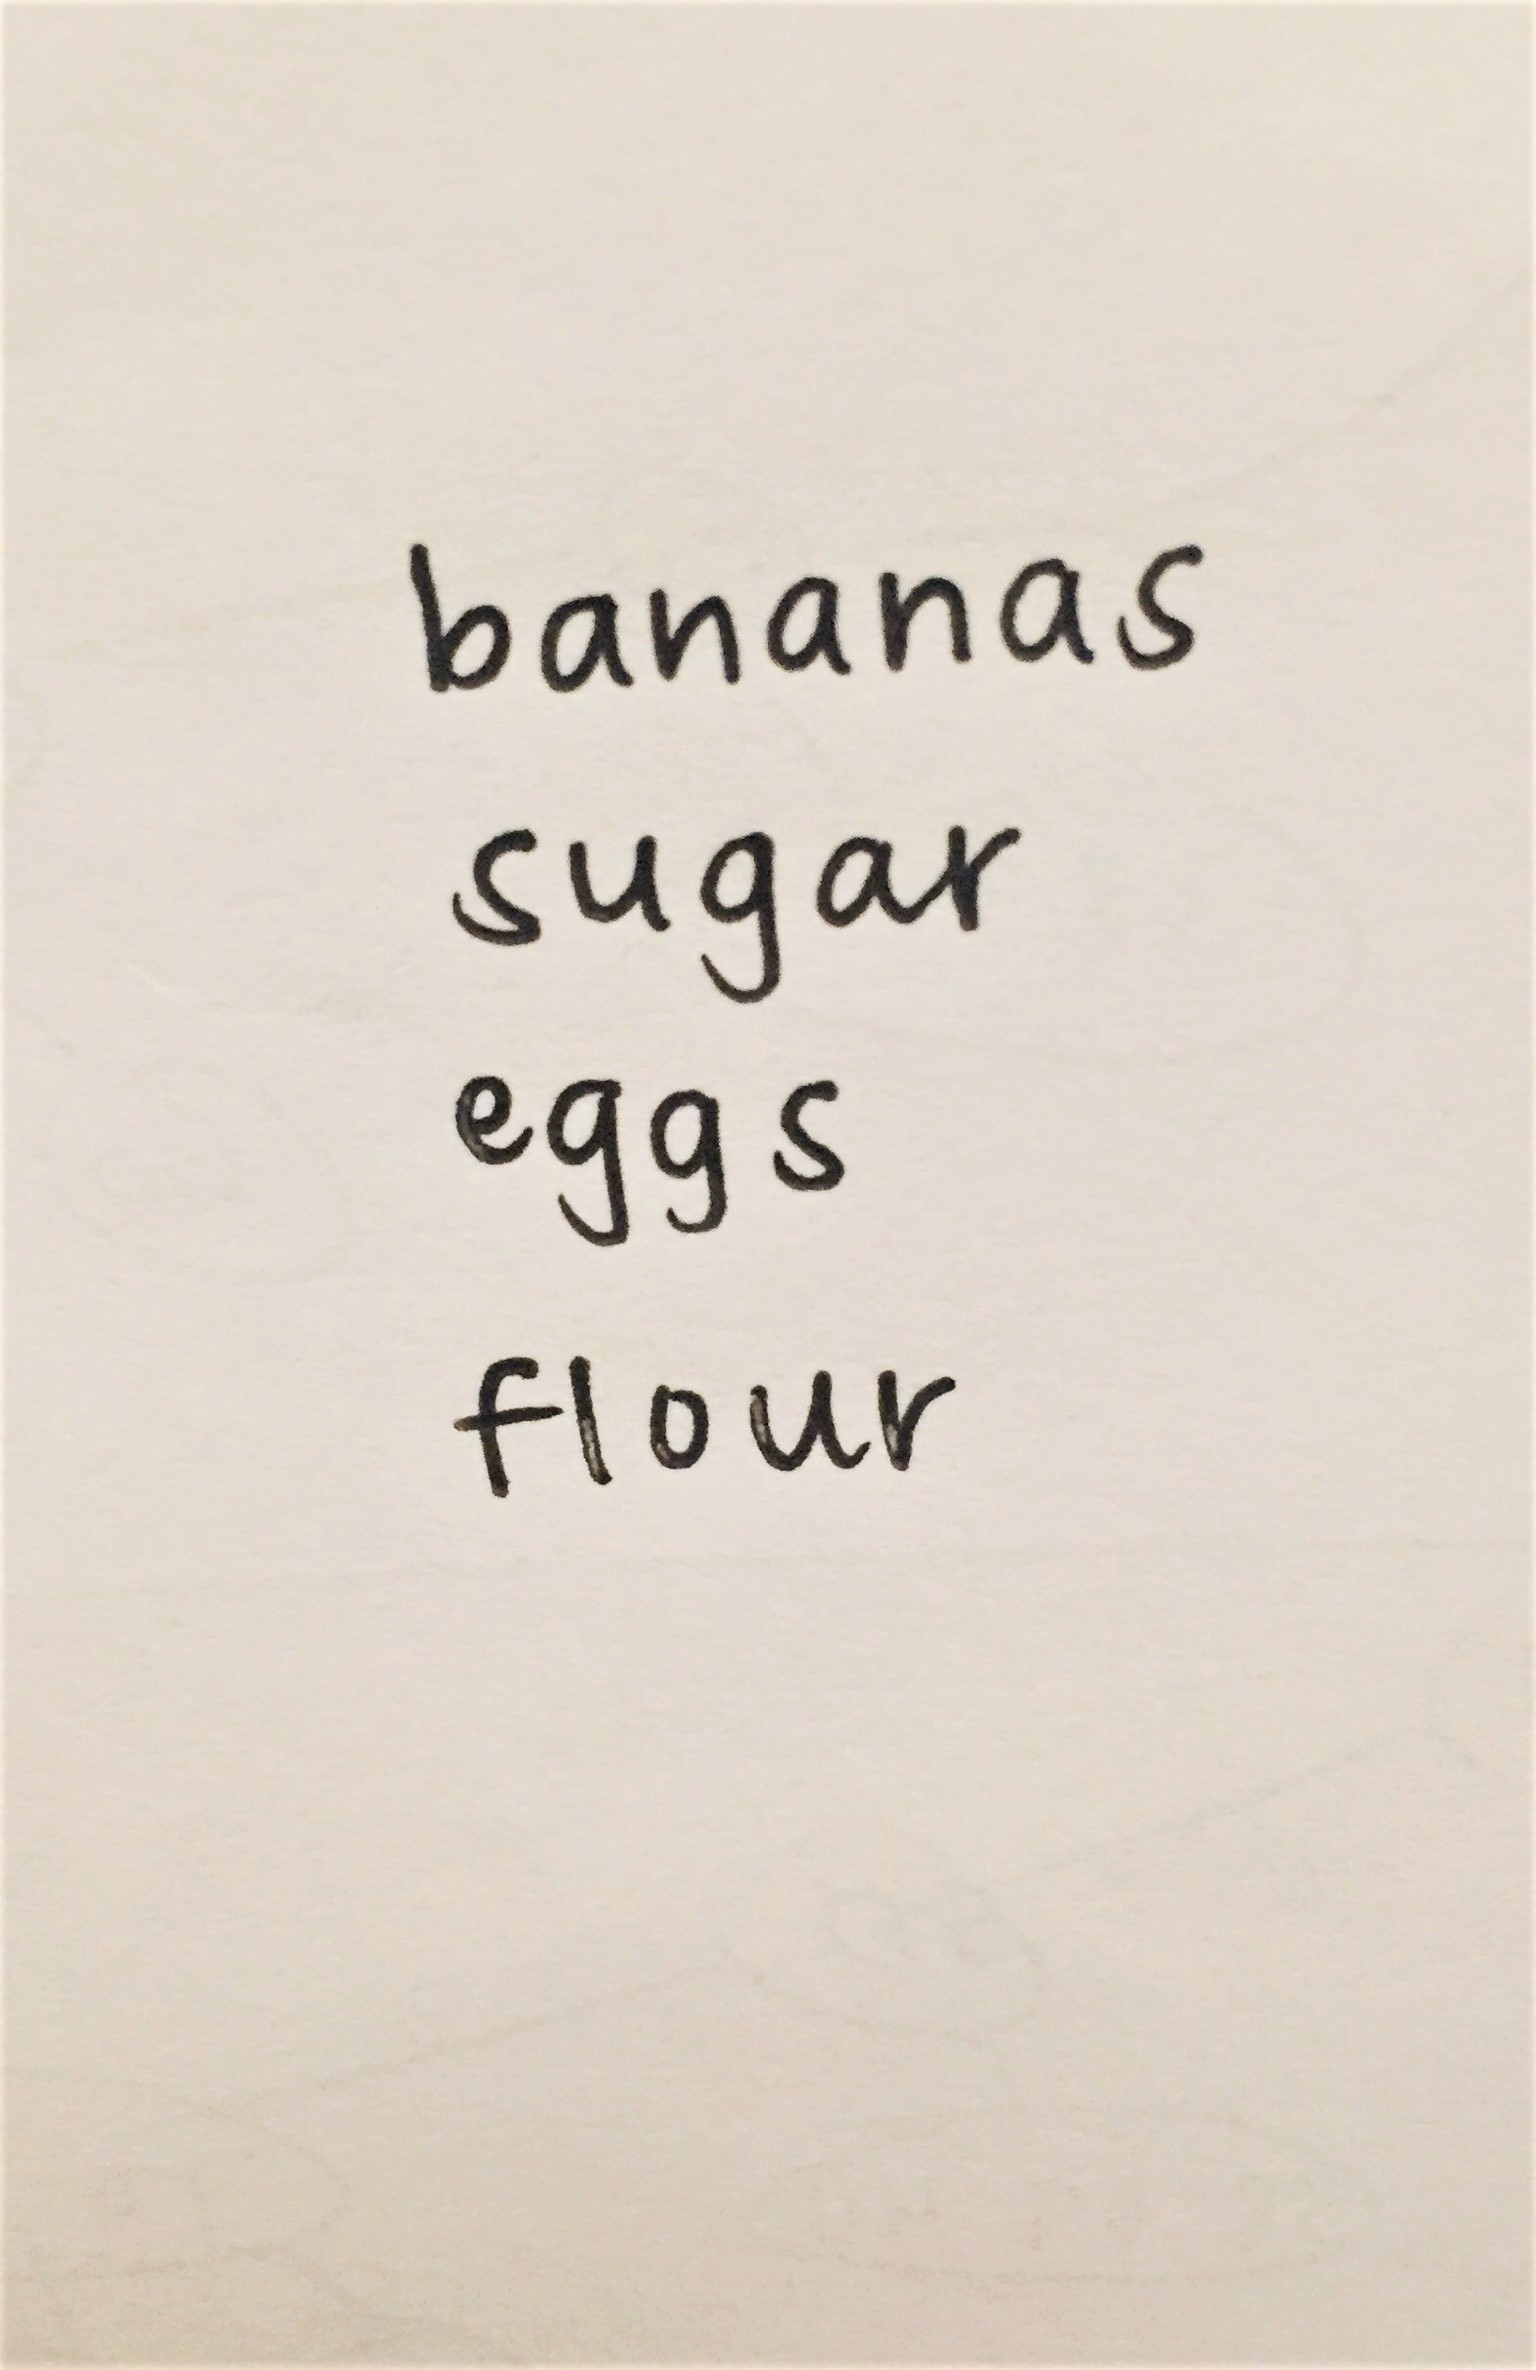 bananas
sugar
eggs
flour